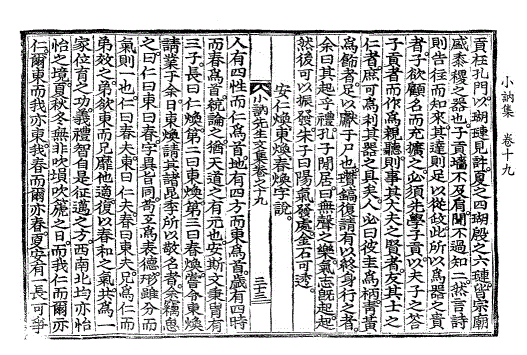 小訥集 卷十九
貢在孔門以瑚璉見許夏之四瑚殷之六璉皆宗廟
盛黍稷之器也子貢墻不及肩聞不過知二然言詩
則告往而知來其達則足以從政此所以為器之貴
者子欲顧名而充擴之必須先學子貢以夫子之答
子貢者而作為視聽則事其大夫之賢者友其士之
仁者庶可為利其器之具矣人必曰彼圭為柄青黃
為飾者足以獻于尸也瓚鎬復請有以終身行之者
余曰其起乎禮孔子閒居曰無聲之樂氣志旣起起
然後可以振發朱子曰陽氣發處金石可透
安仁煥東煥春煥字說
小訥先生文集卷之十九 三十三
人有四性而仁為首地有四方而東為首歲有四時
而春為首統論之猶天道之有元也安斯文秉胄有
三子長曰仁煥第二曰東煥第三曰春煥嘗令東煥
請業于余日東煥請其諸昆季所以敬名者余竊息
之曰仁曰東曰春字異旨同苟互為表德形雖分而
氣則一也仁曰春夫東曰仁夫春曰東夫兄為仁而
弟效之弟欲東而兄靡他適復以春和之氣共為一
家位育之功義禮智自是征邁之方西南北均亦怡
怡之境夏秋冬無非吹塤吹箎之日而我仁而爾亦
仁爾東而我亦東我春而爾亦春夏安有一長可爭